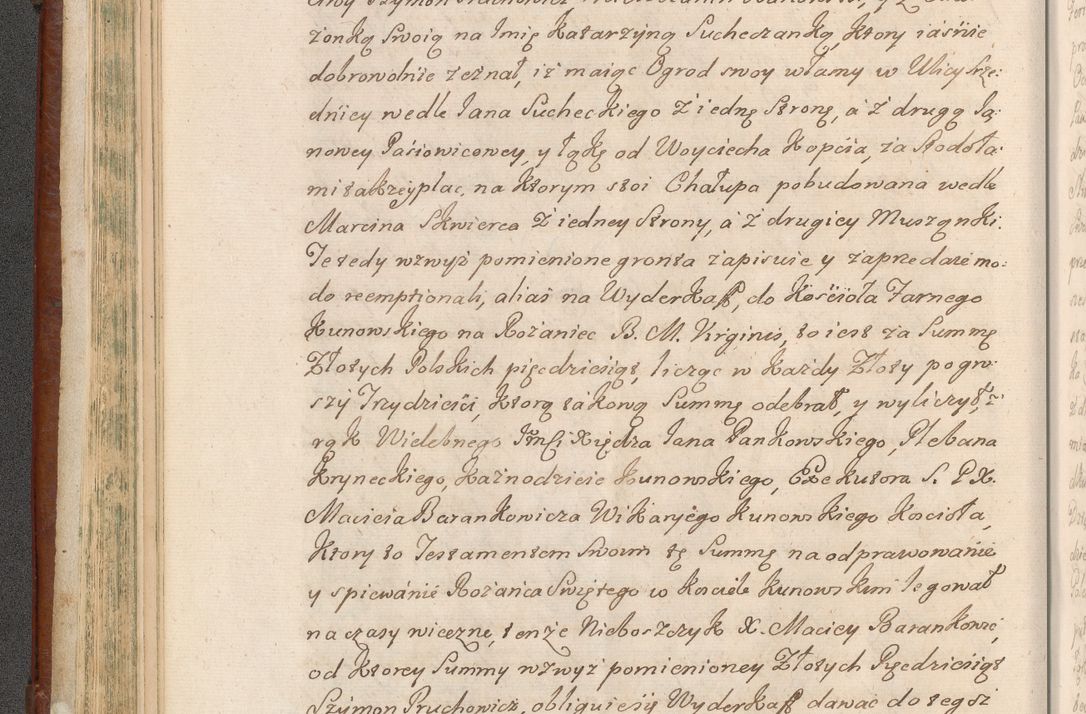 żonką Swoią na Imię Katarzyną Sucheczanką, Ktory iáśnie
dobrowolnie zeznał, iż maiąc Ogrod swoy własny w Ulicy Srze:
dniey wedle Iana Sucheckiego z iedną Stronę, á z drugą Ia:
nowey Pasiowicowey, y łąkę od Woyciecha Kopcia, za Stodoła:
mi także y plac, na Ktorym stoi Chałupa pobudowana wedle
Marcina Skwierca z iedney Strony, á z drugiey Muszynski.
Te tedy wzwyż pomienione gronta zapisuie y zaprzedaie mo:
do reemptionali, alias na Wyderkaff, do Kościoła Farnego
Kunowskiego na Rożaniec B. M. Virginis, to iest za Summę
Złotych Polskich pięcdziesiąt, licząc w Każdy Złoty po gro:
szy Trzydzieści, Ktorą tákową Summę odebrał, y wyliczył, z
rąk Wielebnego Jmci Xiędza Iana Pankowskiego, Plebana
Kryneckiego, Kaźnodzieie Kunowskiego, Exekutora S. P. X.
Macieia Barankowicza Wikaryego Kunowskiego Kościoła,
Ktory to Testamentem Swoim tę Summę na odprawowanie
y spiewánie Rożańca Świętego w Kosciele Kunowskim legował
na czasy wieczne, tenże Nieboszczyk X. Maciey Barankowic,
od Ktorey Summy wzwyż pomienioney Złotych Pięcdziesiąt
Szymon Pruchowicz, obliguie się Wyderkaff dawać do tegoż